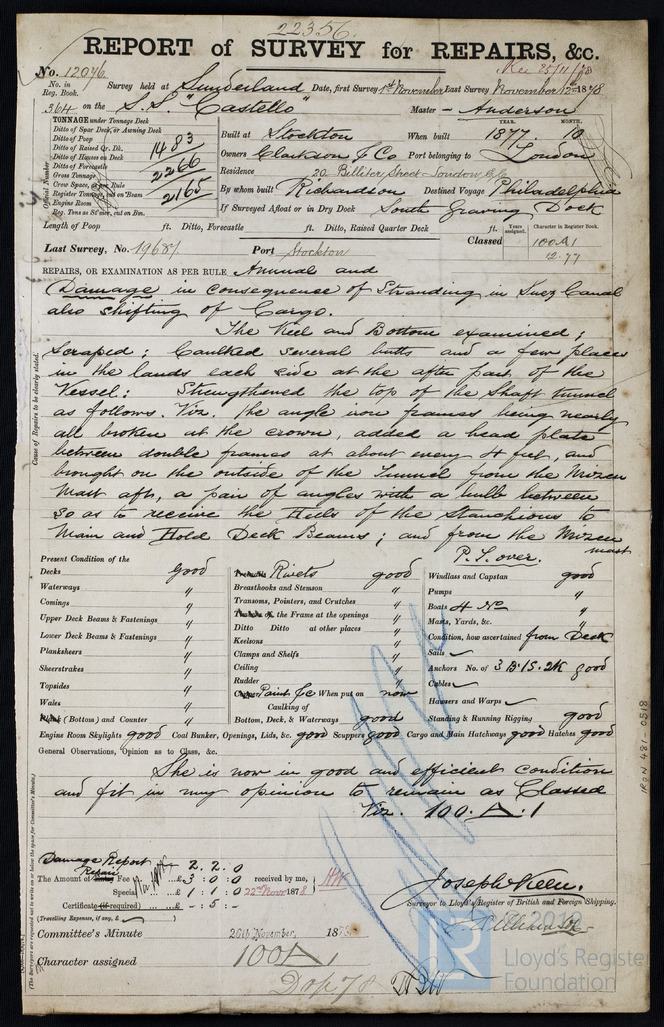 22356
REPORT of SURVEY for REPAIRS, &c.
No. 12076 Rec 25/11/78
No. in Reg. Book. Survey held at Sunderland Date, first Survey 1st November Last Survey November 12th 1878
364 on the S.S. "Castello" Master - Anderson
TONNAGE under Tonnage Deck
Ditto of Spar Deck, or Awning Deck
Ditto of Poop
Ditto of Raised Qr. Dk. 1483
Ditto of Houses on Deck
Ditto of Forecastle
Gross Tonnage 2266
Crew Space, as per Rule
Register Tonnage, cut on Beam 2165
Engine Room
Reg. Tons as St'mer, cut on Bm.
Official Number
YEAR. MONTH.
Built at Stockton When built 1877. 10
Owners Clarkson & Co Port belonging to London
Residence 20 Billiter Street London E.C.
By whom built Richardson Destined Voyage Philadelphia
If Surveyed Afloat or in Dry Dock South Graving Dock
Length of Poop ft. Ditto, Forecastle ft. Ditto, Raised Quarter Deck ft.
Years assigned. Character in Register Book.
Classed 100 A 1
12.77
Last Survey, No. 19681 Port Stockton
REPAIRS, OR EXAMINATION AS PER RULE Annual and
Damage in consequence of Stranding in Suez Canal
also shifting of Cargo.
The Keel and Bottom examined;
Scraped; Caulked several butts and a few places
in the lands each side at the after part of the
Vessel: Strengthened the top of the Shaft tunnel
as follows. Viz. The angle iron frames being nearly
all broken at the crown, added a head plate
between double frames at about every 4 feet, and
brought on the outside of the Tunnel from the Mizen
Mast aft, a pair of angles with a bulb between
so as to receive the Heels of the Stanchions to
Main and Hold Deck Beams; and from the Mizen
mast
P.T. over.
Cause of Repairs to be clearly stated.
Present Condition of the
Decks good
Waterways "
Comings "
Upper Deck Beams & Fastenings "
Lower Deck Beams & Fastenings "
Planksheers "
Sheerstrakes "
Topsides "
Wales "
Plank (Bottom) and Counter "
Treenails Rivets good
Breasthooks and Stemson "
Transoms, Pointers, and Crutches "
the Frame at the openings "
Ditto Ditto at other places "
Keelsons "
Clamps and Shelfs "
Ceiling "
Rudder "
Copper Paint &c When put on now
Caulking of
Bottom, Deck, & Waterways good
Windlass and Capstan good
Pumps "
Boats 4 No "
Masts, Yards, &c. "
Condition, how ascertained from Deck
Sails
Anchors No. of 3 B. 1 S. 2 K good
Cables
Hawsers and Warps
Standing & Running Rigging good
Engine Room Skylights good Coal Bunker, Openings, Lids, &c. good Scuppers good Cargo and Main Hatchways good Hatches good
General Observations, Opinion as to Class, &c.
She is now in good and efficient condition
and fit in my opinion to remain as Classed
Viz. 100. A. 1
IRON 481-0518
Damage Report 2. 2. 0
Repair
The Amount of Entry Fee £ 3: 0: 0 received by me,
Special £ 1: 1: 0 22nd Novr 1878
Certificate (if required) £ - 5: -
(Travelling Expenses, if any, £ )
Joseph Keen.
Surveyor to Lloyd's Register of British and Foreign Shipping.
Committee's Minute 26th November, 1878
Character assigned 100 A 1
(The Surveyors are requested not to write on or below the space for Committee's Minute.)
LR
© 2019
Lloyd's Register
Foundation